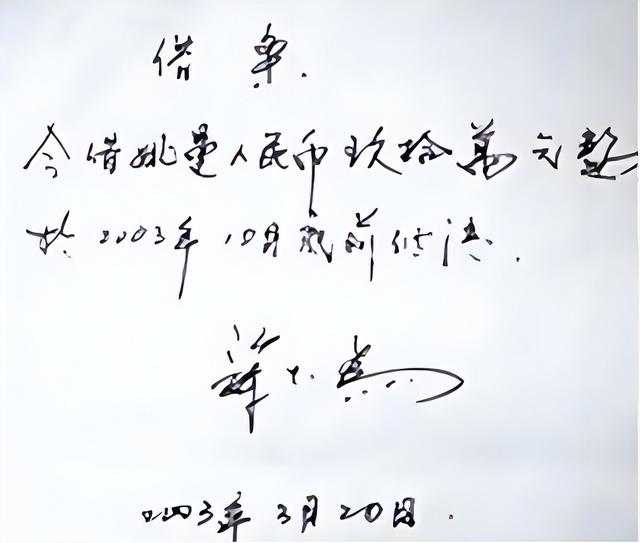 借条.
今借姚曼人民币玖拾萬元整
於2003年10月底前还清.
2003年3月20日.